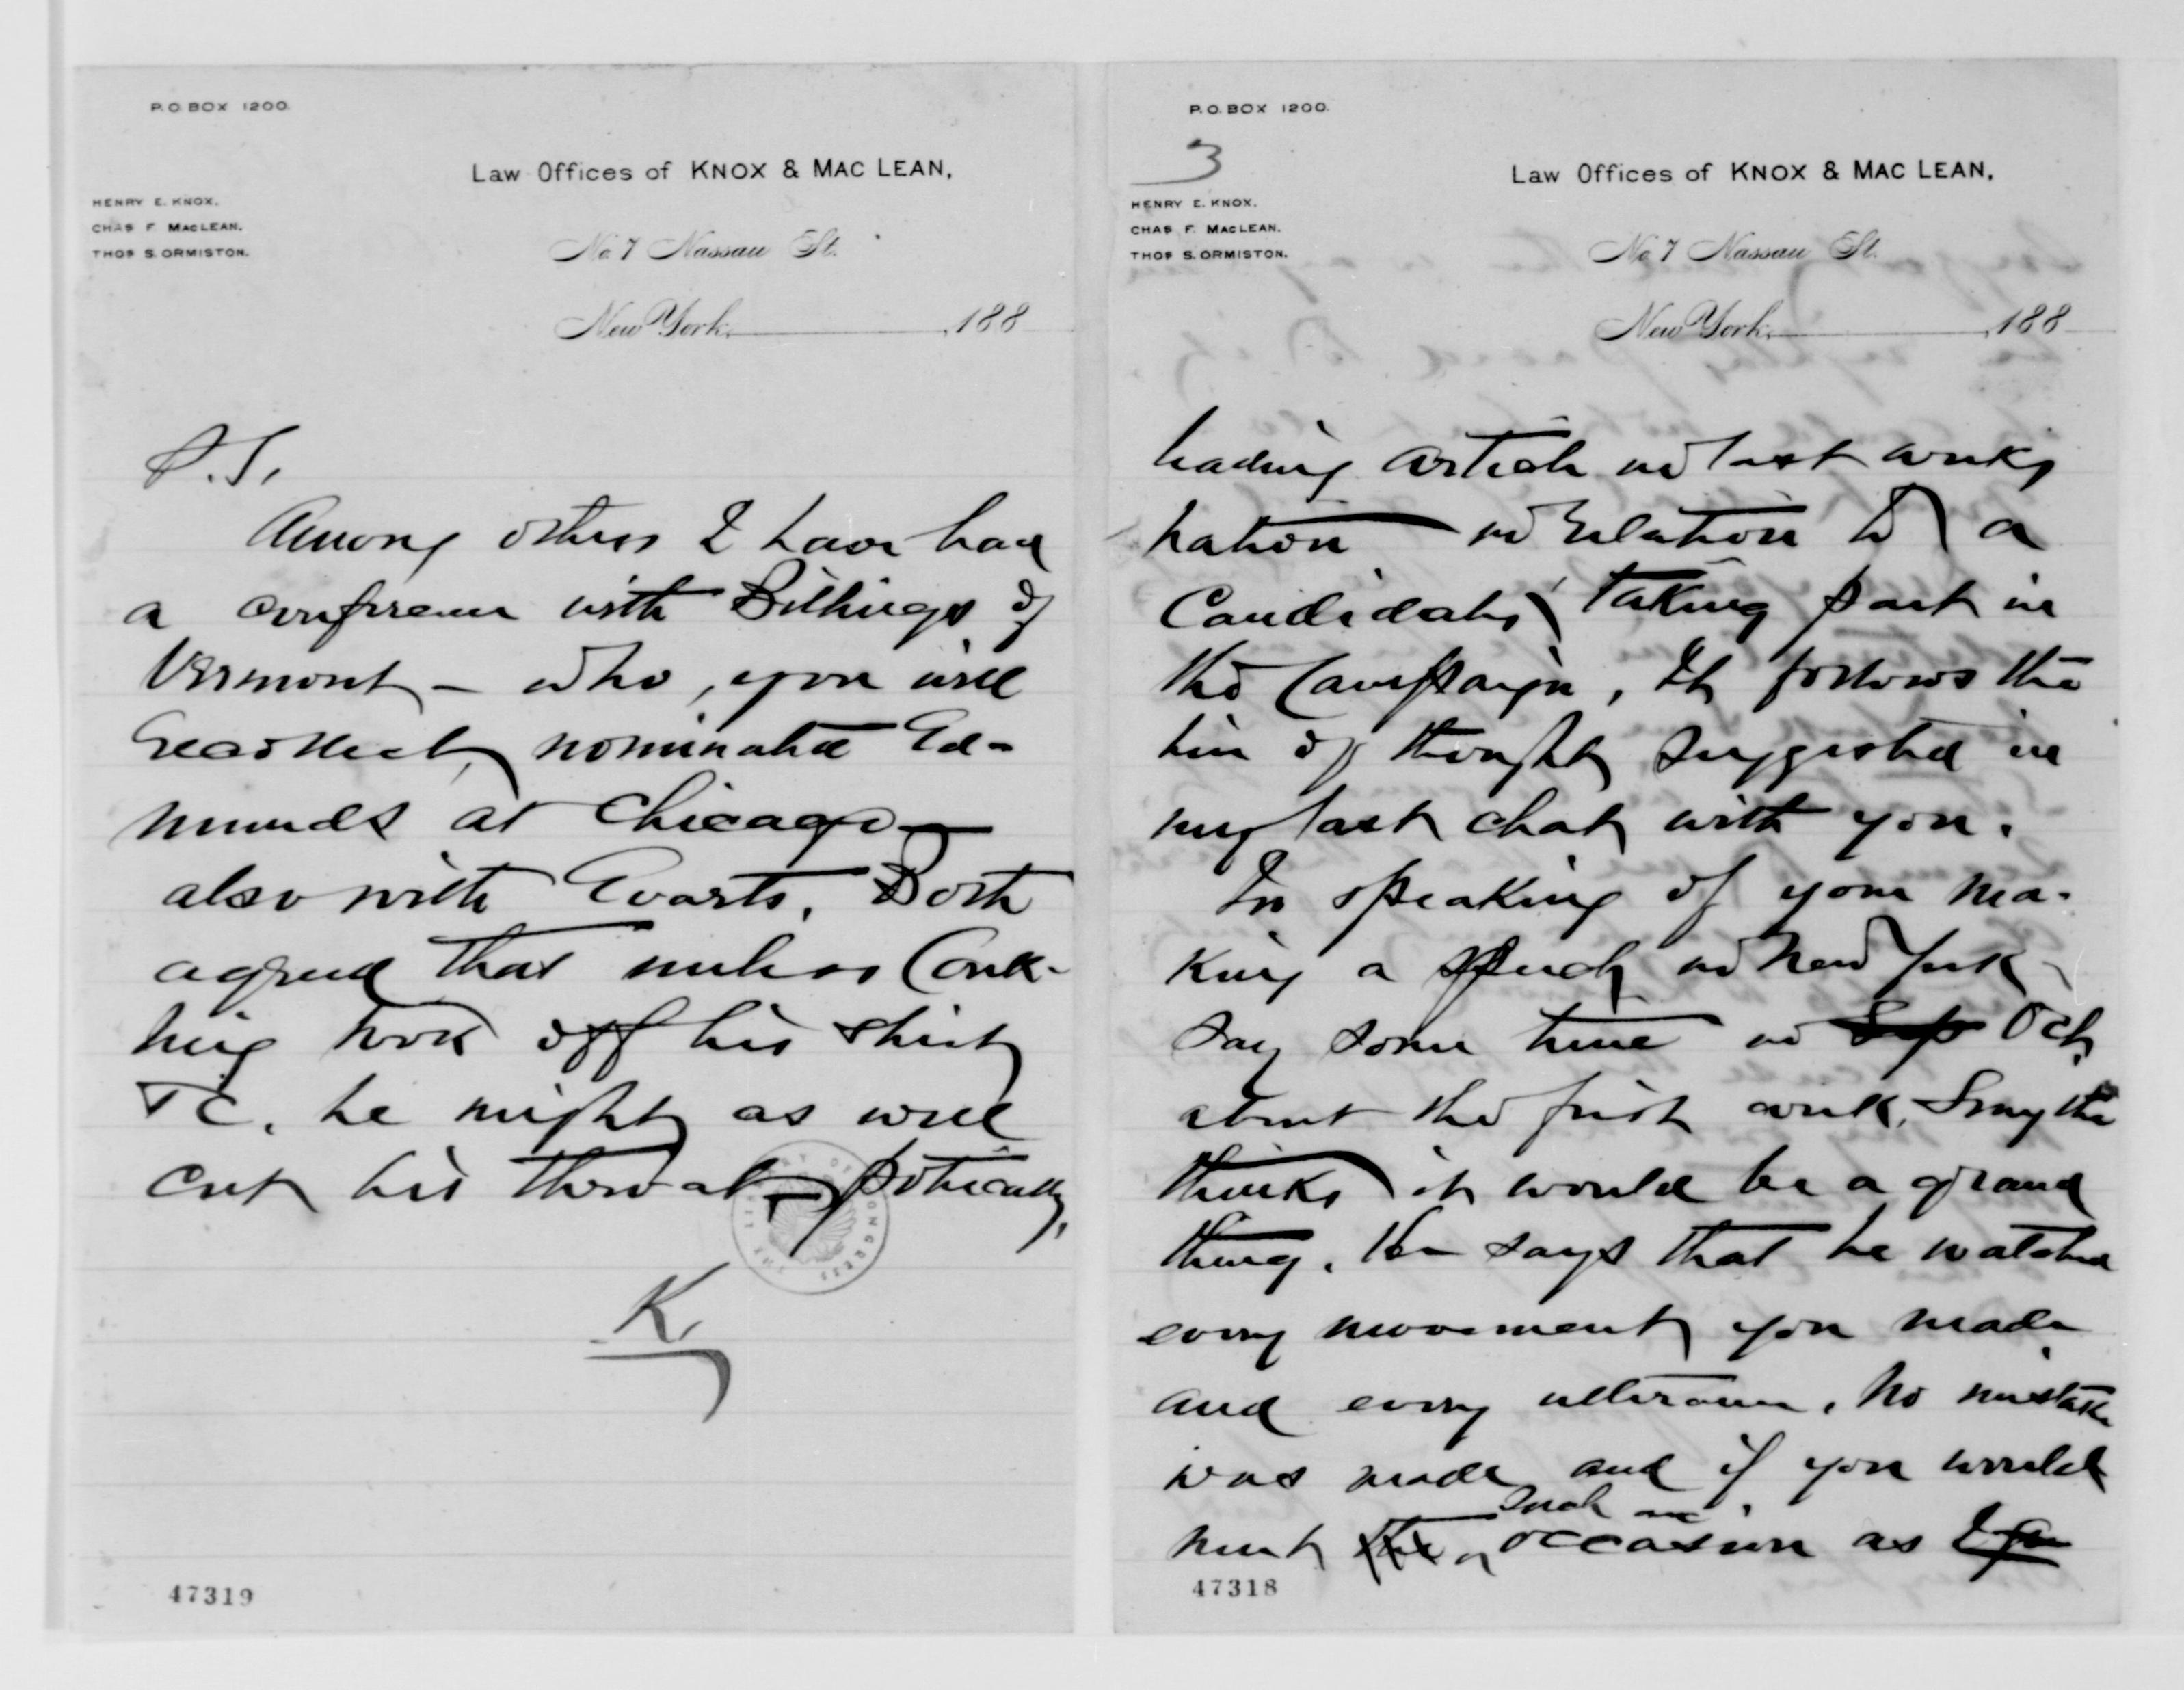 P.O. BOX 1200.
Law Offices of KNOX & MAC LEAN,
HENRY E. KNOX.
CHAS F. MACLEAN.
THOS S. ORMISTON.
No 7 Nassau St.
New York, 188
P.S.
Among others I have had
a conference with Billings of
Vermont – who, you will
recollect, nominated Ed-
munds at Chicago –
also with Evarts. Both
agreed that unless Conk-
ling took off his shirt
&c. he might as well
cut his throat, politically.
K.
THE LIBRARY OF CONGRESS
47319
P.O. BOX 1200.
3
Law Offices of KNOX & MAC LEAN,
HENRY E. KNOX.
CHAS F. MACLEAN.
THOS S. ORMISTON.
No 7 Nassau St.
New York, 188
leading article in last weeks
Nation in relation to a
Candidates taking part in
the Campaign, It follows the
line of thought suggested in
my last chat with you.
In speaking of your ma-
king a speech in New York
say some time in Sep Oct,
about the first week, Smythe
thinks it would be a grand
thing. He says that he watched
every movement you made
and every utterance. No mistake
was made and if you would
such an
meet the occasion as I am
47318